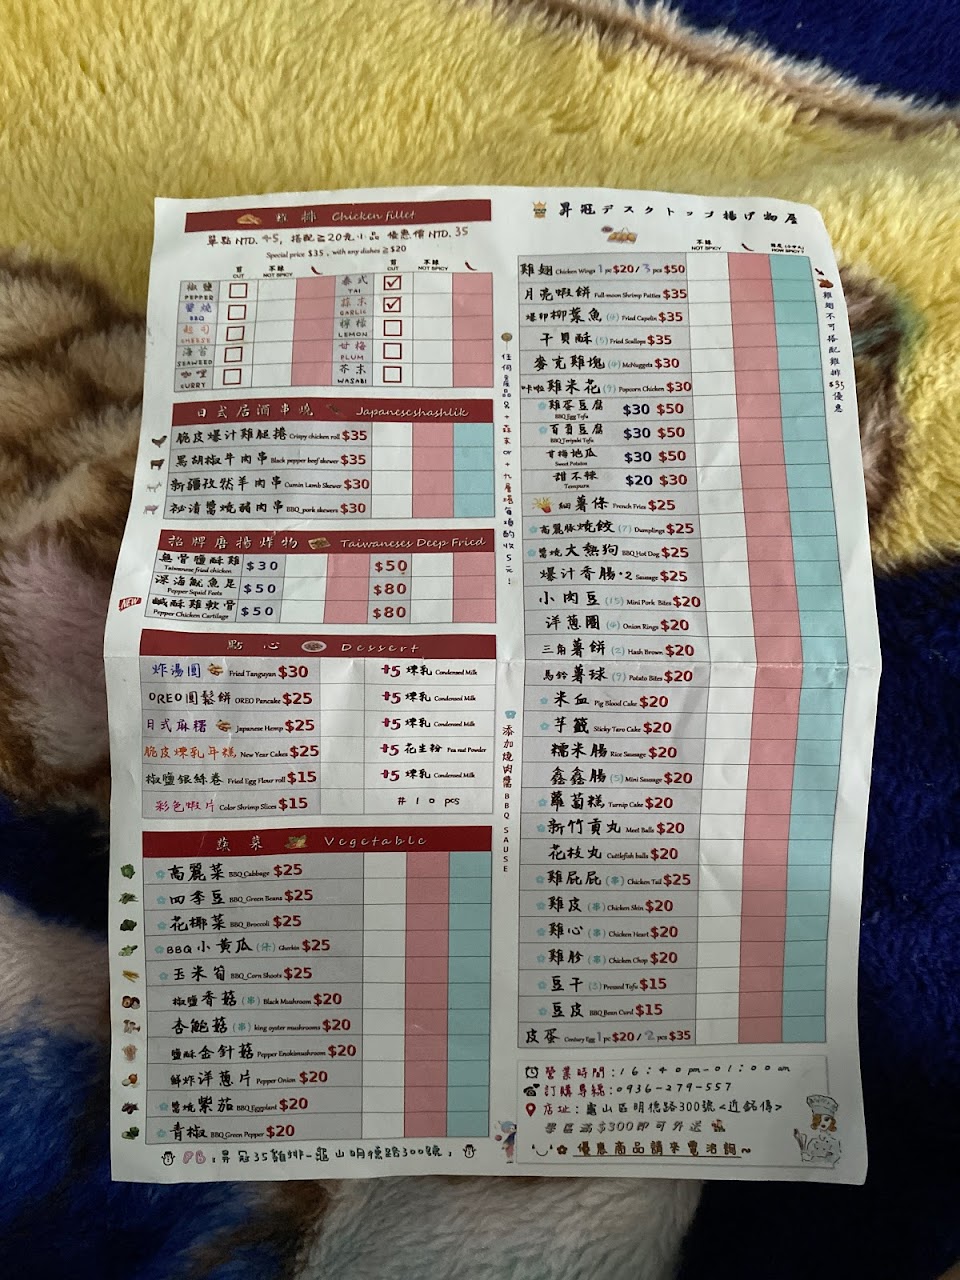 雞排 Chicken fillet
單點 NTD. 45, 搭配≧20元小品 優惠價NTD. 35
Special price $35 , with any dishes ≧ $20
剪 CUT 不辣 NOT SPICY 剪 CUT 不辣 NOT SPICY
椒鹽 PEPPER 泰式 TAI
醬燒 BBQ 蒜末 GARLIC
起司 CHEESE 檸檬 LEMON
海苔 SEAWEED 甘梅 PLUM
咖哩 CURRY 芥末 WASABI
日式居酒串燒 Japaneseshashlik
脆皮爆汁雞腿捲 Crispy chicken roll $35
黑胡椒牛肉串 Black pepper beef skewer $35
新疆孜然羊肉串 Cumin Lamb Skewer $30
祕清醬燒豬肉串 BBQ_pork skewers $30
招牌唐揚炸物 Taiwaneses Deep Fried
無骨鹽酥雞 Taiwanese fried chicken $30 $50
深海魷魚足 Pepper Squid Feets $50 $80
NEW 鹹酥雞軟骨 Pepper Chicken Cartilage $50 $80
點心 Dessert
炸湯圓 Fried Tangyuan $30 +5 煉乳 Condensed Milk
OREO圓鬆餅 OREO Pancake $25 +5 煉乳 Condensed Milk
日式麻糬 Japanese Hemp $25 +5 煉乳 Condensed Milk
脆皮煉乳年糕 New Year Cakes $25 +5 花生粉 Peanut Powder
椒鹽銀絲卷 Fried Egg Flour roll $15 +5 煉乳 Condensed Milk
彩色蝦片 Color Shrimp Slices $15 # 10 pcs
蔬菜 Vegetable
高麗菜 BBQ_Cabbage $25
四季豆 BBQ_Green Beans $25
花椰菜 BBQ_Broccoli $25
BBQ小黃瓜 Gherkin $25
玉米筍 BBQ_Corn Shoots $25
椒鹽香菇 (串) Black Mushroom $20
杏鮑菇 (串) king oyster mushrooms $20
鹽酥金針菇 Pepper Enokimushroom $20
鮮炸洋蔥片 Pepper Onion $20
醬燒紫茄 BBQ Eggplant $20
青椒 BBQ Green Pepper $20
FB:昇冠35雞排-龜山明德路300號
任何產品&+蒜末or+九層塔每項酌收5元!
添加燒肉醬BBQ SAUSE
昇冠デスクトップ揚げ物屋
不辣 NOT SPICY HOW SPICY?
雞翅 Chicken Wings 1 pc $20 / 3 pcs $50
月亮蝦餅 Full-moon Shrimp Patties $35
爆卵柳葉魚 (4) Fried Capelin $35
干貝酥 (5) Fried Scallops $35
麥克雞塊 (4) McNuggets $30
咔啦雞米花 (9) Popcorn Chicken $30
雞蛋豆腐 BBQ Egg Tofu $30 $50
百頁豆腐 BBQ Teriyaki Tofu $30 $50
甘梅地瓜 Sweet Potatos $30 $50
甜不辣 Tempura $20 $30
細薯條 French Fries $25
高麗豚燒餃 (7) Dumplings $25
醬燒大熱狗 BBQ Hot Dog $25
爆汁香腸*2 Sausage $25
小肉豆 (15) Mini Pork Bites $20
洋蔥圈 (4) Onion Rings $20
三角薯餅 (2) Hash Brown $20
馬鈴薯球 (9) Potato Bites $20
米血 Pig Blood Cake $20
芋籤 Sticky Taro Cake $20
糯米腸 Rice Sausage $20
鑫鑫腸 (5) Mini Sausage $20
蘿蔔糕 Turnip Cake $20
新竹貢丸 Meet Balls $20
花枝丸 Cuttlefish balls $20
雞屁屁 (串) Chicken Tail $25
雞皮 (串) Chicken Skin $20
雞心 (串) Chicken Heart $20
雞胗 (串) Chicken Chop $20
豆干 (5) Pressed Tofu $15
豆皮 BBQ Bean Curd $15
皮蛋 Century Egg 1 pc $20 / 2 pcs $35
雞翅不可搭配雞排$35優惠
營業時間:16:40pm-01:00am
訂購專線:0936-279-557
店址:龜山區明德路300號<近銘傳>
學區滿$300即可外送
優惠商品請來電洽詢~